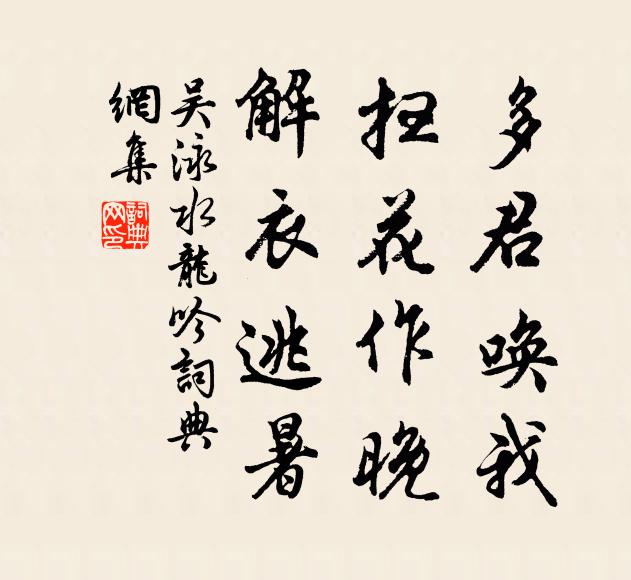 多君唤我
扫花作晚
解衣逃暑
吴泳水龍吟詞典
網集
詞典网印